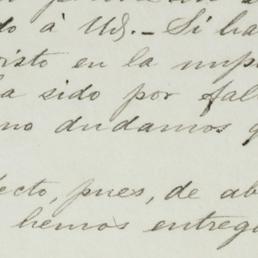 do à Uds. — Si ha
isto en la imp
a sido por fal
no dudamos q
ecto, pues, de ab
hemos entreg